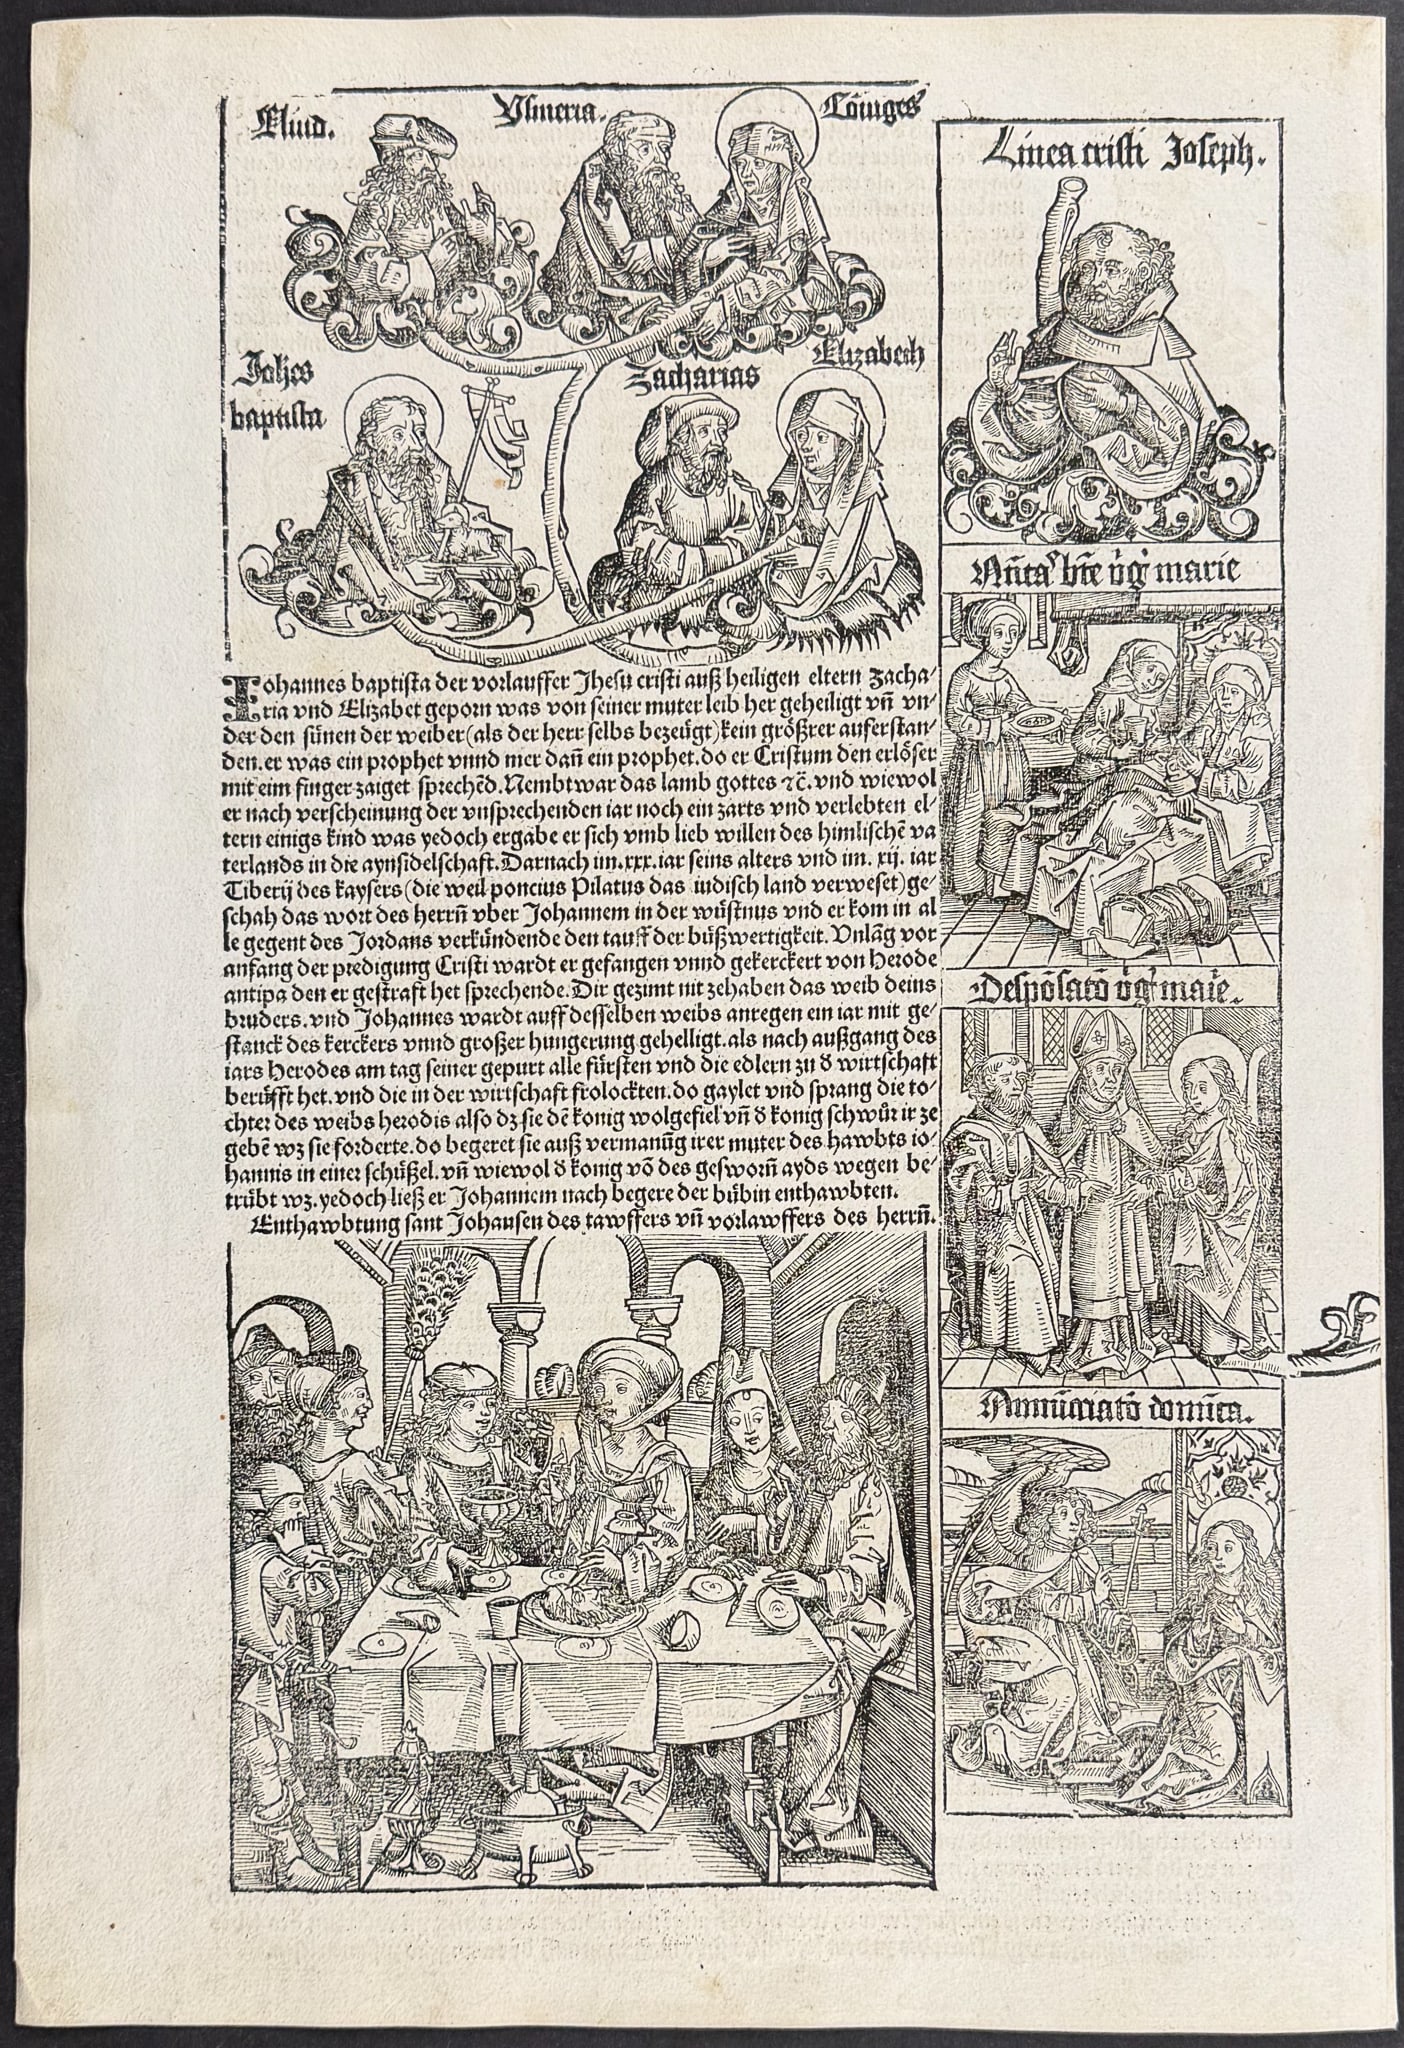 Eliud.
Ysmeria.
Cōiuges
Johēs
baptista
Zacharias
Elizabeth
Johannes baptista der vorlauffer Jhesu cristi auß heiligen eltern Zacha-
ria vnd Elizabet geporn was von seiner muter leib her geheiligt vn̄ vn-
der den sünen der weiber (als der herr selbs bezeügt) kein größrer auferstan-
den. er was ein prophet vnnd mer dan̄ ein prophet. do er Cristum den erlöser
mit eim finger zaiget sprechēd. Nembtwar das lamb gottes ⁊c̄. vnd wiewol
er nach verscheinung der vnsprechenden iar noch ein zarts vnd verlebten el-
tern einigs kind was yedoch ergabe er sich vmb lieb willen des himlischē va
terlands in die aynsidelschaft. Darnach im .xxx. iar seins alters vnd im. xij. iar
Tiberij des kaysers (die weil poncius Pilatus das iudisch land verweset) ge-
schah das wort des herrn̄ vber Johannem in der wüstnus vnd er kom in al
le gegent des Jordans verkündende den tauff der büßwertigkeit. Vnlāg vor
anfang der predigung Cristi wardt er gefangen vnnd gekerckert von Herode
antipa den er gestraft het sprechende. Dir gezimt nit zehaben das weib deins
bruders. vnd Johannes wardt auff desselben weibs anregen ein iar mit ge-
stanck des kerckers vnnd großer hungerung gehelligt. als nach außgang des
iars Herodes am tag seiner gepurt alle fürsten vnd die edlern zu d̕ wirtschaft
berüfft het. vnd die in der wirtschaft frolockten. do gaylet vnd sprang die to-
chter des weibs herodis also dz sie dē konig wolgefiel vn̄ d̕ konig schwůr ir ze
gebē wz sie forderte. do begeret sie auß vermanūg irer muter des hawbts io-
hannis in einer schüßel. vn̄ wiewol d̕ konig vō des geswornn̄ ayds wegen be-
trübt wz. yedoch ließ er Johannem nach begere der bübin enthawbten.
Enthawbtung sant Johansen des tawffers vn̄ vorlawffers des herrn̄.
Linea cristi Joseph.
Nāta bt̄e v̄g marie
Despōsatō v̄g maīe.
Annūciatō domīca.